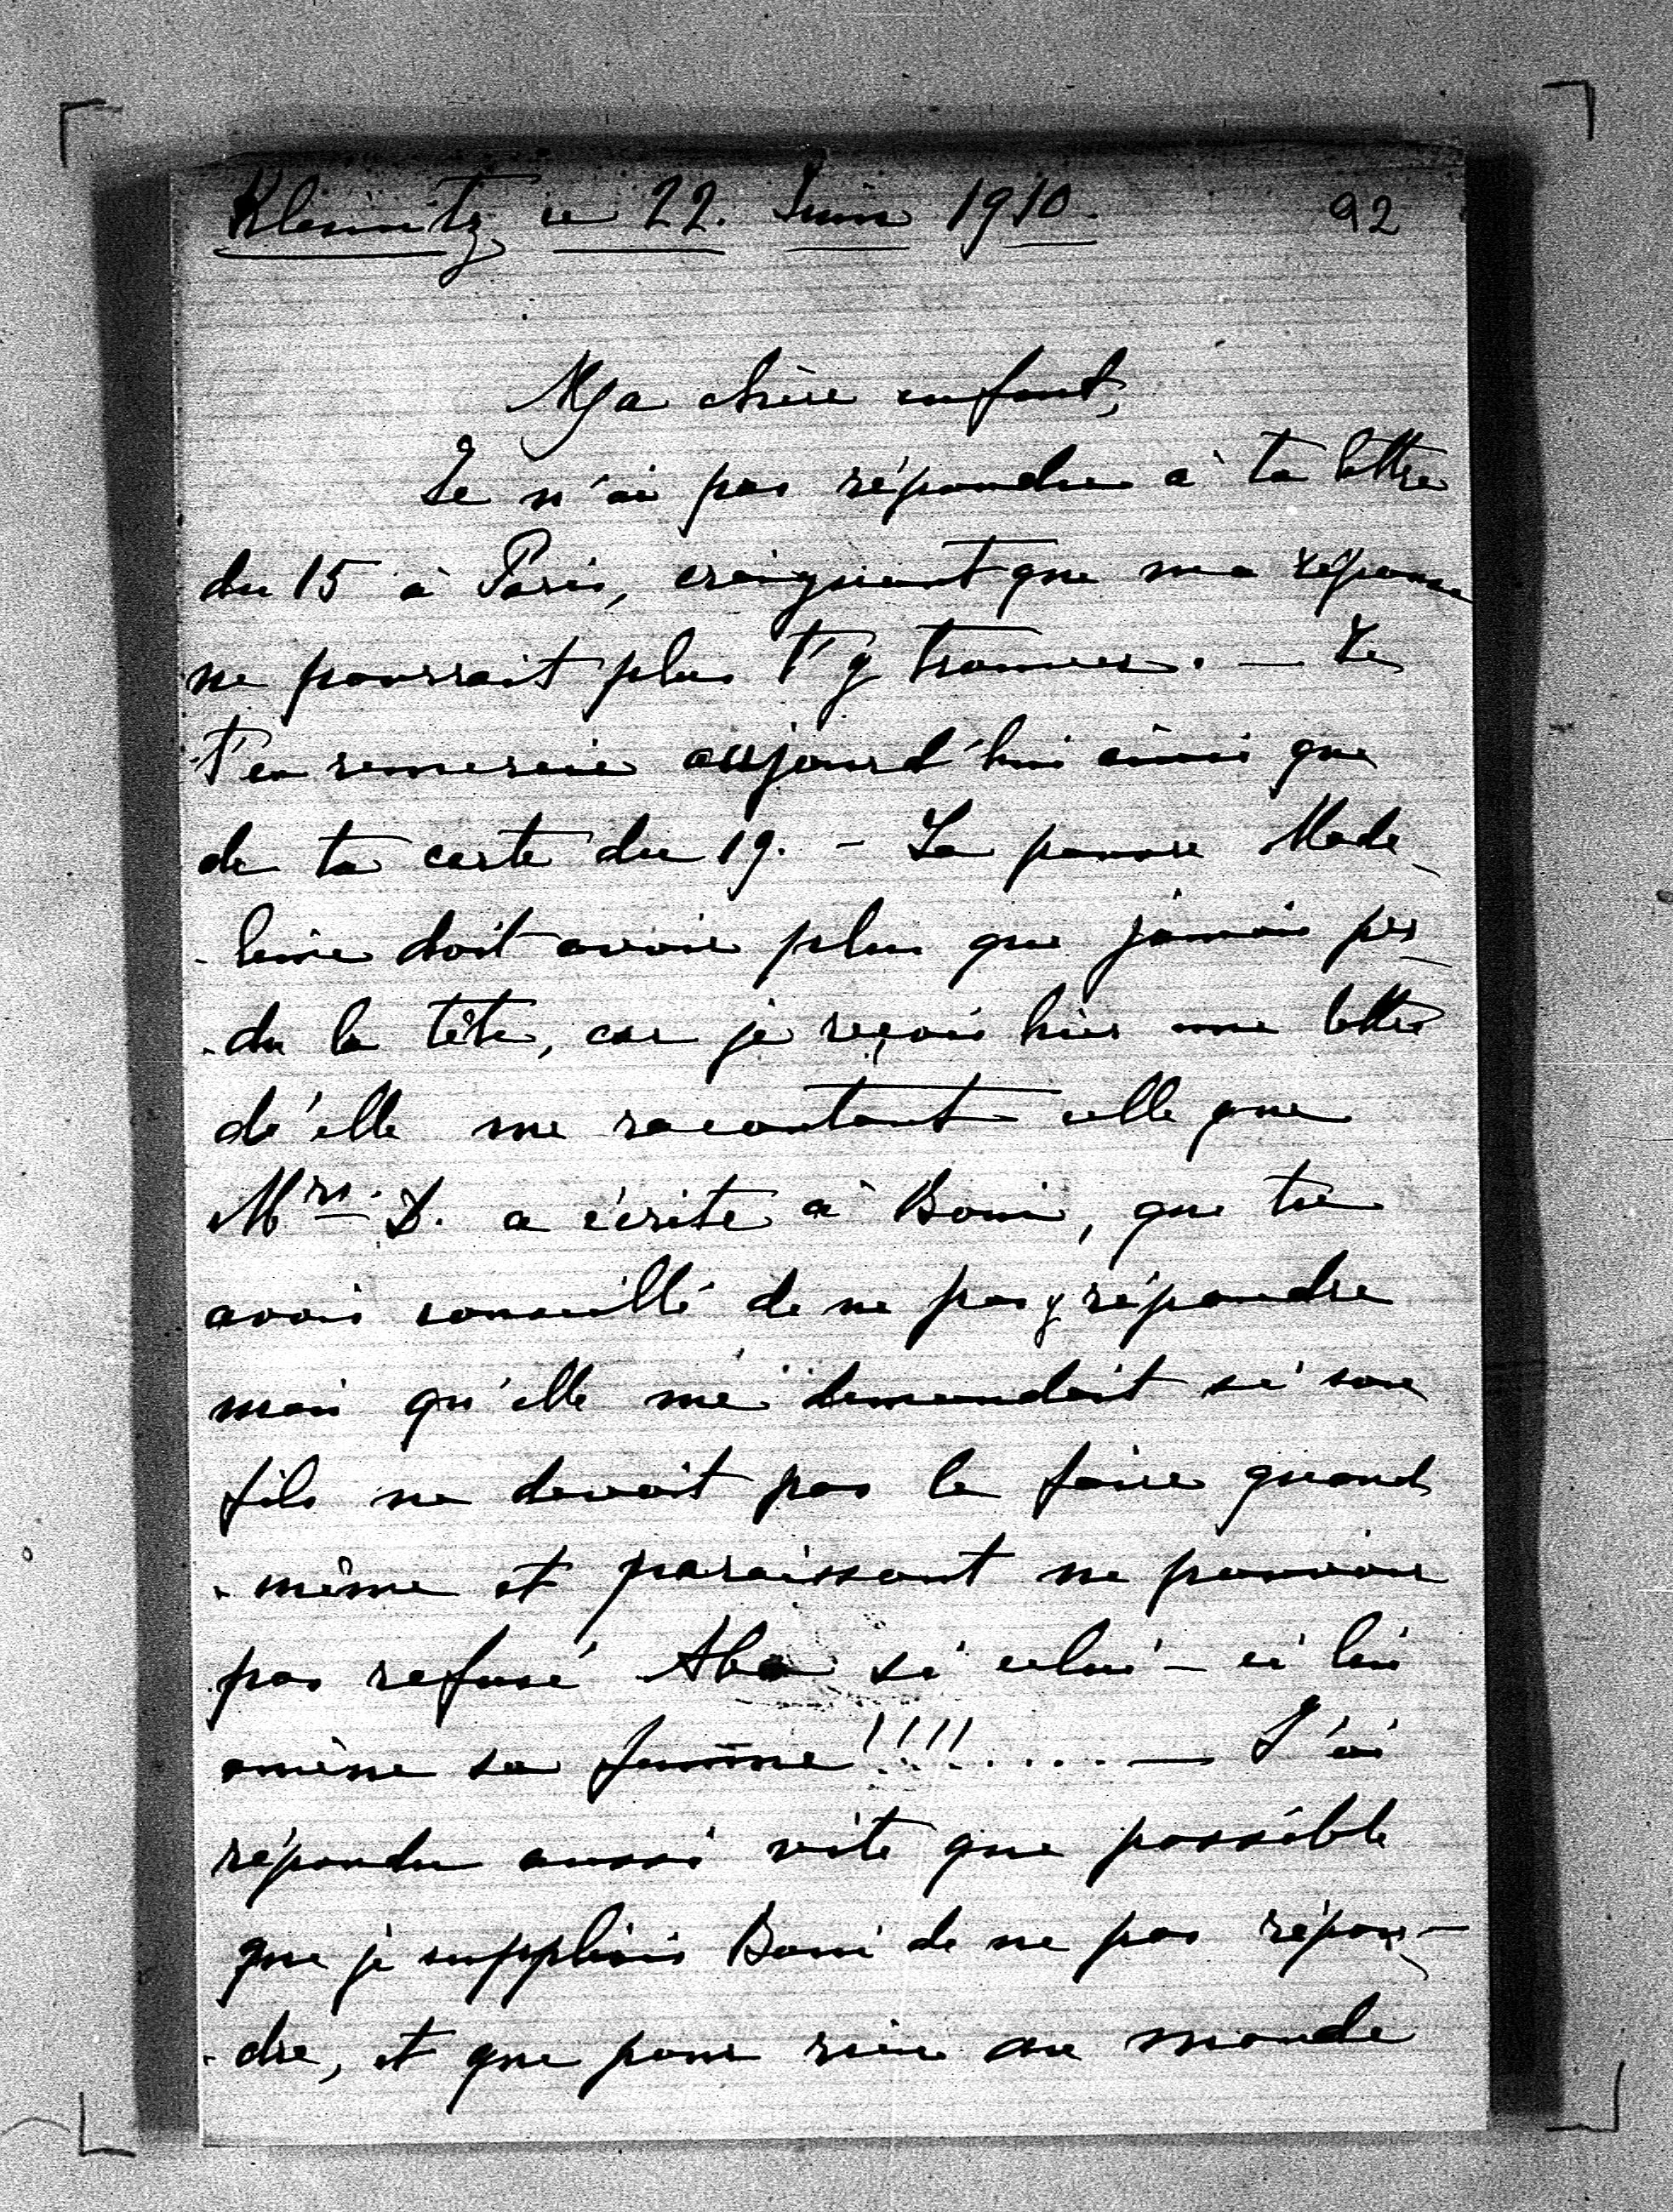 Kleinitz ce 22. Juin 1910. 92
Ma chère enfant,
Je n'ai pas répondu à ta lettre
du 15 à Paris, craignant que ma réponse
ne pourrait plus t'y trouver. — Je
t'en remercie aujourd'hui ainsi que
de ta carte du 19. — La pauvre Made-
-leine doit avoir plus que jamais per-
-du la tête, car je reçois hier une lettre
d'elle me racontant celle que
Mrs. D. a écrite à Boni, que tu
avais conseillé de ne pas y répondre
mais qu'elle me demandait si son
fils ne devait pas le faire quand
-même et paraissant ne pouvoir
pas refusé si celui-ci lui
amène sa femme!!!!.... — J'ai
répondu aussi vite que possible
que je suppliais Boni de ne pas répon-
-dre, et que pour rien au monde